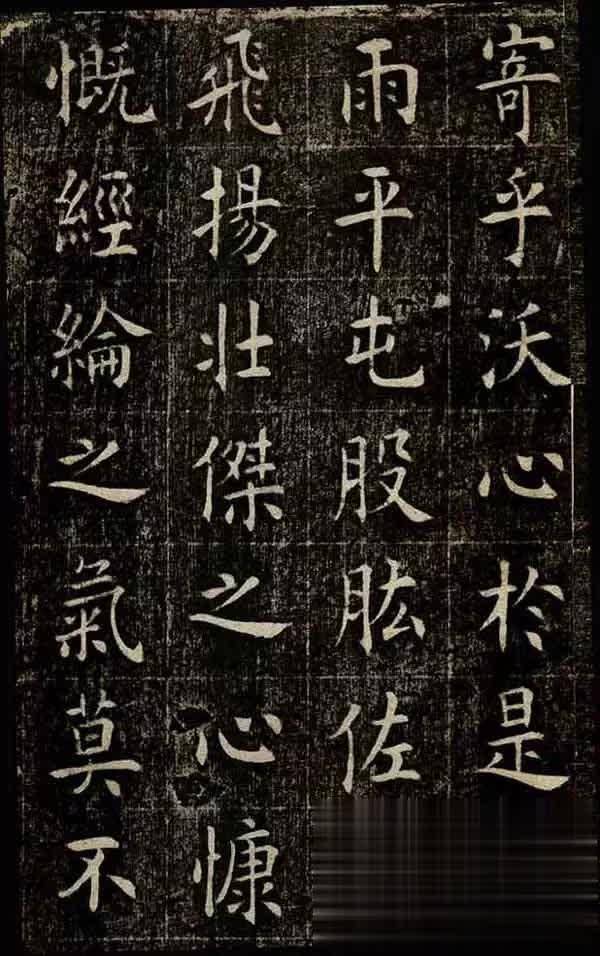 寄乎沃心於是
雨平屯股肱佐
飛揚壯傑之心慷
慨經綸之氣莫不